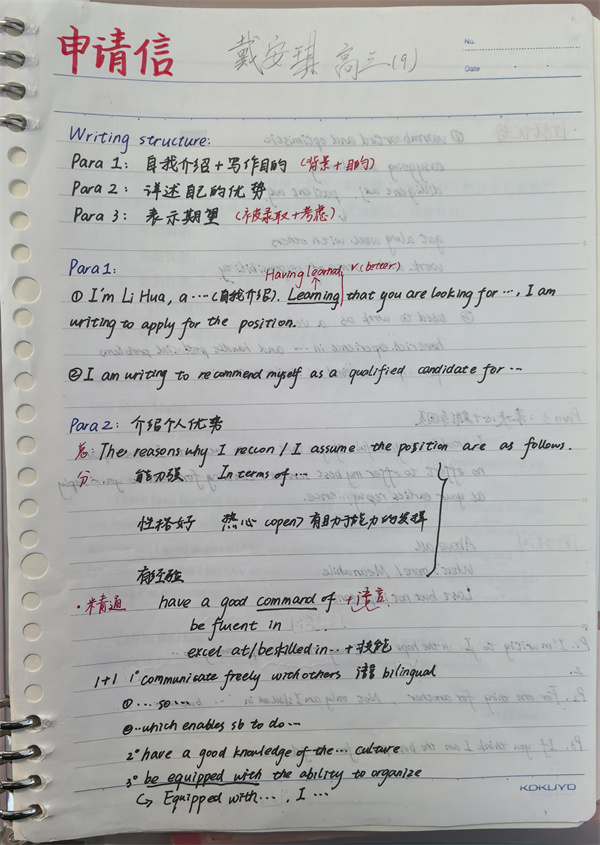 申请信 戴安琪 高三(9)
No.
Date
Writing structure:
Para 1: 自我介绍+写作目的 (背景+目的)
Para 2: 详述自己的优势
Para 3: 表示期望 (被录取+考虑)
Para 1:
Having learned √(better)
① I'm Li Hua, a ...(自我介绍). Learning that you are looking for ..., I am
writing to apply for the position.
② I am writing to recommend myself as a qualified candidate for ...
Para 2: 介绍个人优势
总: The reasons why I reccon / I assume the position are as follows.
分: 能力强 In terms of ...
性格好 热心 (open) 有助于能力的发挥
有经验
·精通 have a good command of +语言
be fluent in
excel at/be skilled in...+技能
1+1 1° communicate freely with others 语言 bilingual
① ... so ...
② ..which enables sb to do ...
2° have a good knowledge of the... culture
3° be equipped with the ability to organize
↳ Equipped with ..., I ...
KOKUYO